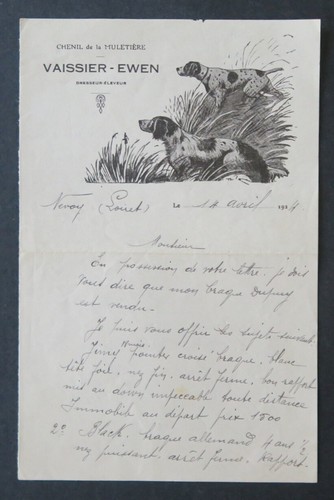 CHENIL de la MULETIÈRE
VAISSIER - EWEN
DRESSEUR-ÉLEVEUR
Nevoy (Loiret) Le 14 avril 1914
Monsieur
En possession de votre lettre. je dois
vous dire que mon braque Dupuy
est vendu.
Je puis vous offrir les sujets suivants
pointer croisé braque. blanc
tête foie. nez fin. arrêt ferme. bon rapport
mis au down impeccable toute distance
Immobile au départ prix 1500
2º Black. braque allemand 4 ans 1/2
nez puissant. arrêt ferme. Rapport.